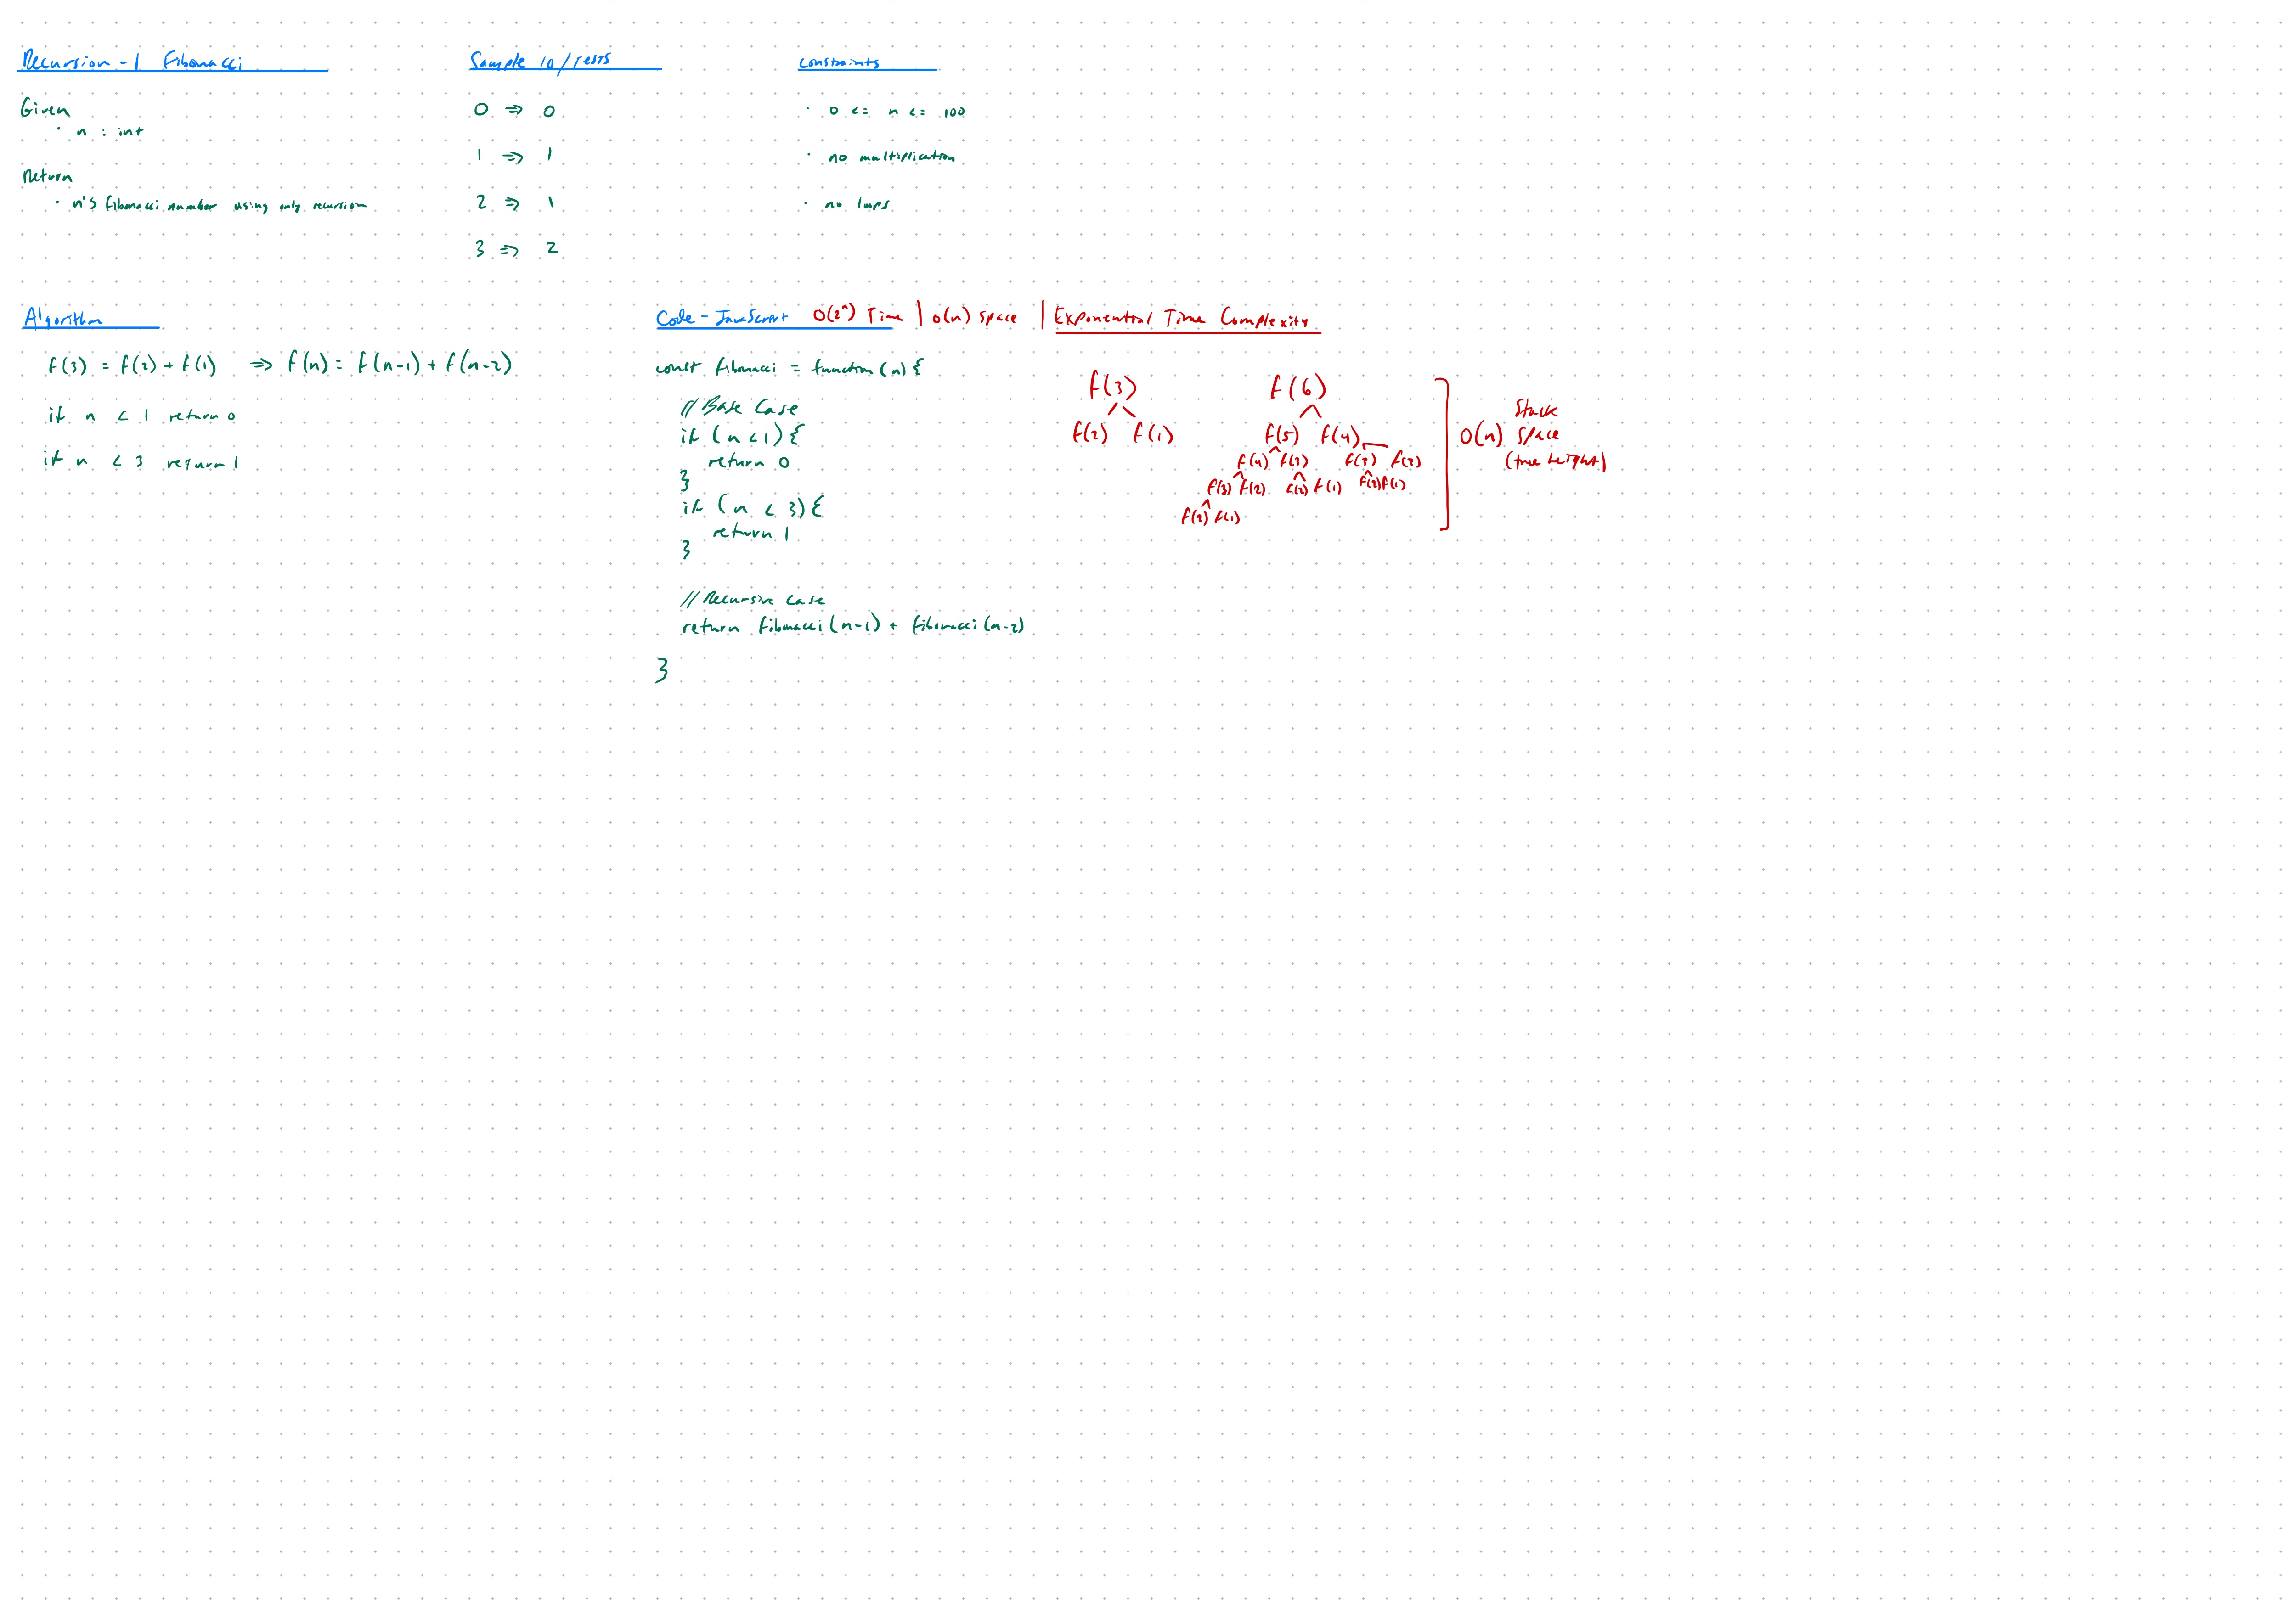 Recursion - 1 Fibonacci
Given
· n : int
Return
· n's fibonacci number using only recursion
Sample IO/Tests
0 => 0
1 => 1
2 => 1
3 => 2
Constraints
· 0 <= n <= 100
· no multiplication
· no loops
Algorithm
f(3) = f(2) + f(1) => f(n) = f(n-1) + f(n-2)
if n < 1 return 0
if n < 3 return 1
Code - JavaScript O(2^n) Time | O(n) space |
const fibonacci = function(n) {
// Base Case
if (n < 1) {
return 0
}
if (n < 3) {
return 1
}
// Recursive Case
return fibonacci(n-1) + fibonacci(n-2)
}
Exponential Time Complexity
f(3)
f(2) f(1)
f(6)
f(5) f(4)
f(4) f(3) f(3) f(2)
f(3) f(2) f(2) f(1) f(2) f(1)
f(2) f(1)
O(n) Stack
Space
(tree height)